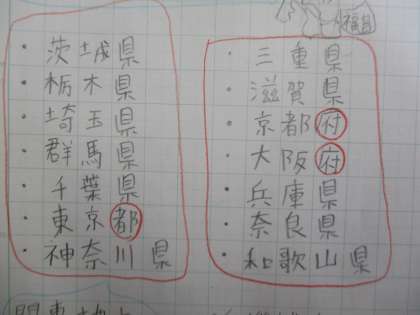 ・茨城県
・栃木県
・埼玉県
・群馬県
・千葉県
・東京都
・神奈川県
・三重県
・滋賀県
・京都府
・大阪府
・兵庫県
・奈良県
・和歌山県